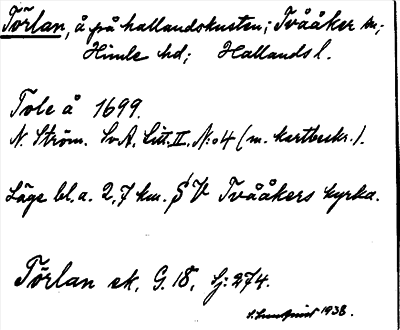 Törlan, å på hallandskusten; Tvååker sn;
Himle hd; Hallands l.
Tole å 1699.
N. Ström. SvA. Litt. II. N:o 4 (m. kartbeskr.).
Läge bl. a. 2,7 km. S V Tvååkers kyrka.
Törlan ek. G. 18, Sj: 274.
1938.